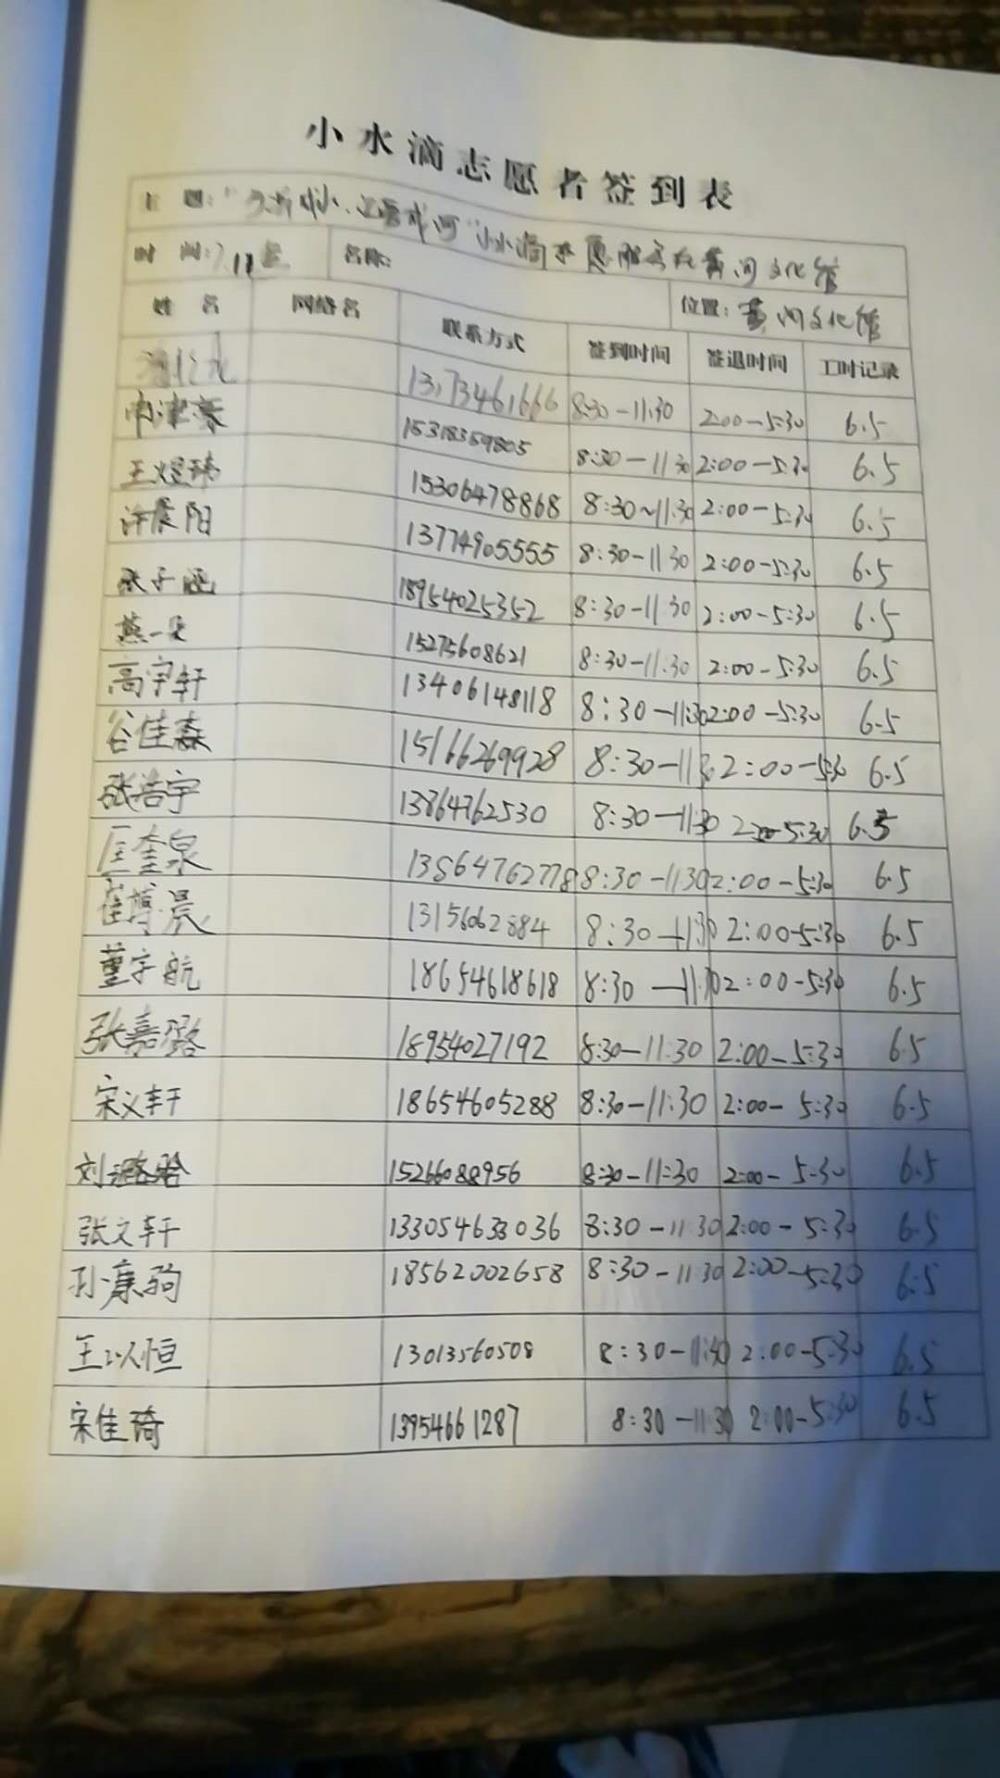 小水滴志愿者签到表
主 题: 小水滴志愿服务在黄河文化馆
时 间: 名称: 位置: 黄河文化馆
姓 名 网络名 联系方式 签到时间 签退时间 工时记录
13173461666 8:30-11:30 2:00-5:30 6.5
15318359805 8:30-11:30 2:00-5:30 6.5
王煜玮 15306478868 8:30~11:30 2:00-5:30 6.5
许晨阳 13774905555 8:30-11:30 2:00-5:30 6.5
张子涵 18954025352 8:30-11:30 2:00-5:30 6.5
燕一 15275608621 8:30-11:30 2:00-5:30 6.5
高宇轩 13406148118 8:30-11:30 2:00-5:30 6.5
谷佳森 15166269928 8:30-11:30 2:00-5:30 6.5
张浩宇 13864762530 8:30-11:30 2:00-5:30 6.5
匡奎泉 13564762778 8:30-11:30 2:00-5:30 6.5
崔博晨 13156062884 8:30-11:30 2:00-5:30 6.5
董宇航 18654618618 8:30-11:30 2:00-5:30 6.5
张嘉璐 18954027192 8:30-11:30 2:00-5:30 6.5
宋义轩 18654605288 8:30-11:30 2:00-5:30 6.5
刘 15266088956 8:30-11:30 2:00-5:30 6.5
张文轩 133054633036 8:30-11:30 2:00-5:30 6.5
孙康驹 18562002658 8:30-11:30 2:00-5:30 6.5
王以恒 13013560508 8:30-11:30 2:00-5:30 6.5
宋佳琦 13954661287 8:30-11:30 2:00-5:30 6.5